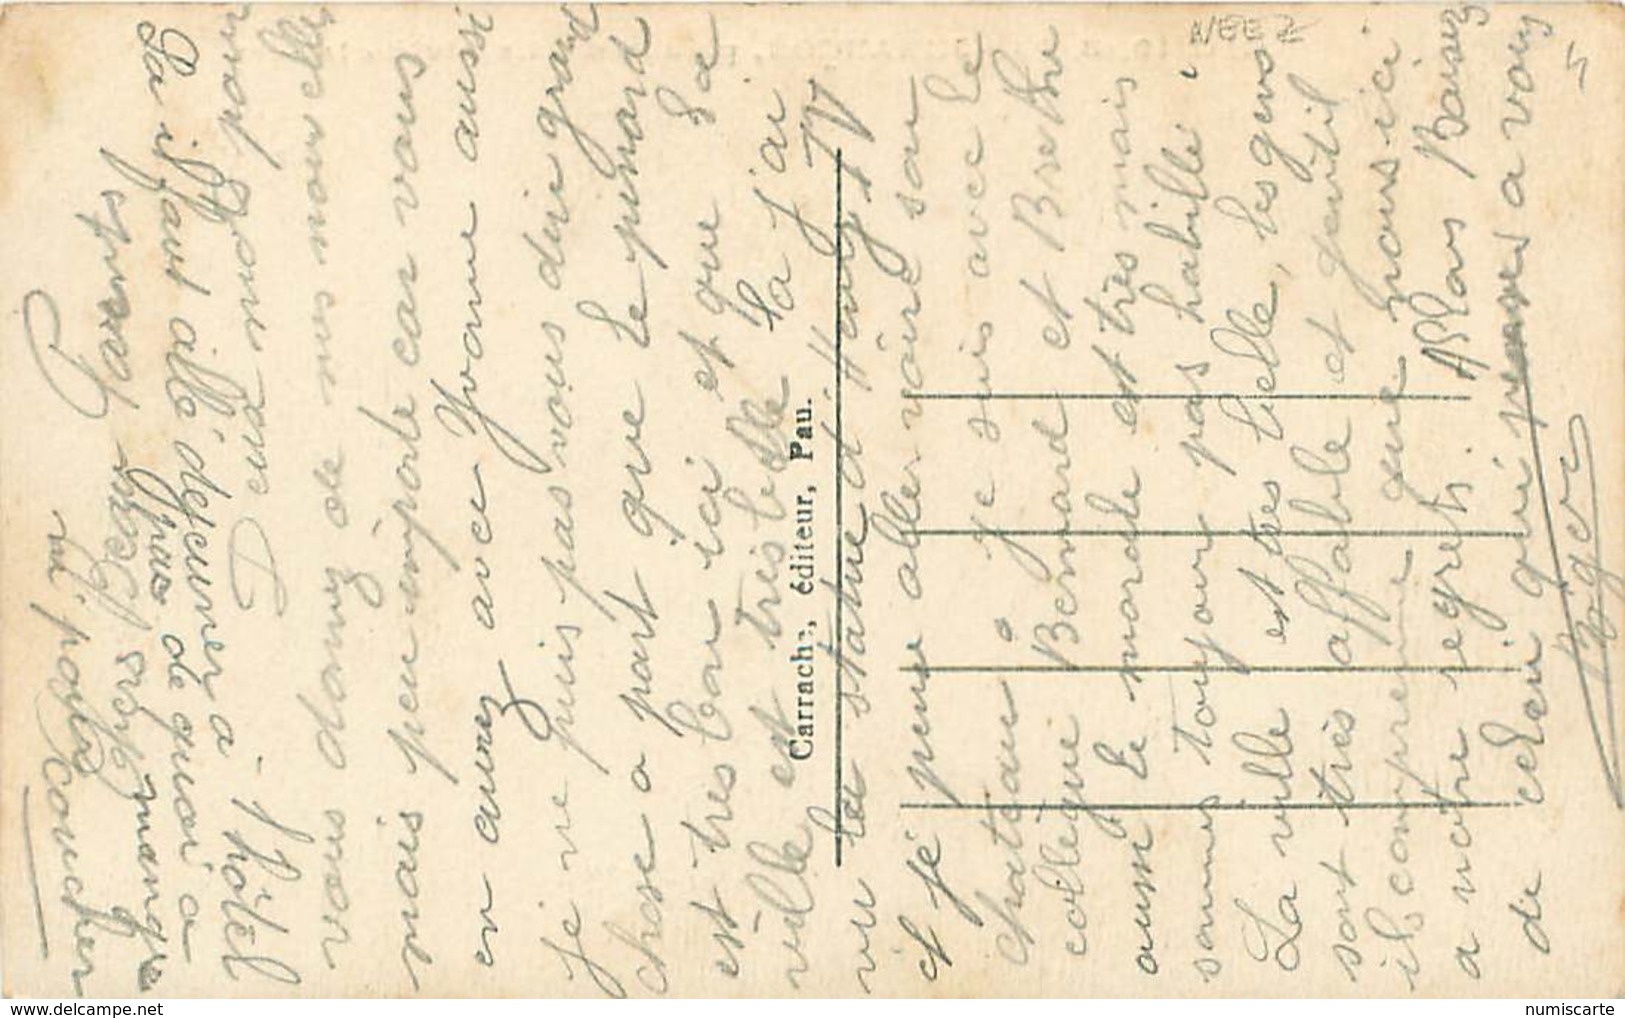 Parents
Un mot pour
vous donnez de mes nouvelles
mais peu importe car vous
en aurez avec Yvonne aussi
Je ne puis pas vous dire grand
chose a part que le pinard
est très bon ici et que la
ville est très belle la j'ai
vu la statue d'Henry IV
et je pense aller voire son
chateau. Je suis avec le
collègue Bernard et Brethe
aussi le morale est très mais
sommes toujour pas habillé.
La ville est très belle, les gens
sont très affable et gentil
ils comprenne que nous ici
a notre regret. Allons Baisers
de celui qui penses a vous
Roger
La il faut allé déjeuner a l'hôtel
pas de quoi a
manger
ni pour coucher
Carrache, éditeur, Pau.
NEEZ
numiscarte